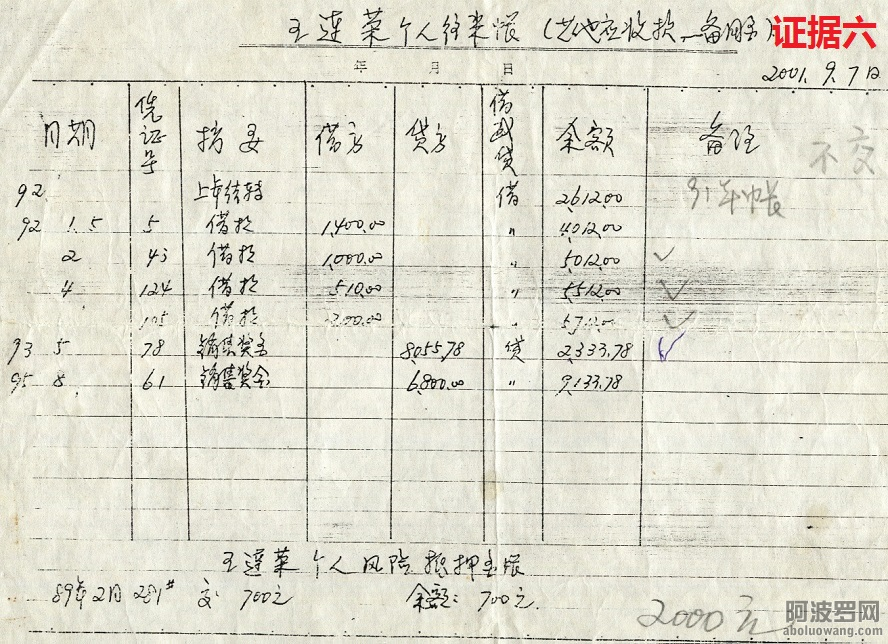 王莲荣个人往来帐（其他应收款—备用金） 证据六
年 月 日
2001.9.7日
日期 凭证号 摘要 借方 贷方 借或贷 余额 备注
不交
92 上年结转 借 2,612.00 91年帐
92 1.5 5 借款 1,400.00 〃 4,012.00
2 43 借款 1,000.00 〃 5,012.00 ✓
4 124 借款 510.00 〃 5,512.00 ✓
105 借款 200.00 〃 5,712.00 ✓
93 5 78 销售奖金 8,055.78 贷 2,333.78 ✓
95 8 61 销售奖金 6,800.00 〃 9,133.78
王莲荣个人风险抵押金帐
89年2月 281# 交 700元 余额：700元.
2000元
阿波罗网
aboluowang.com